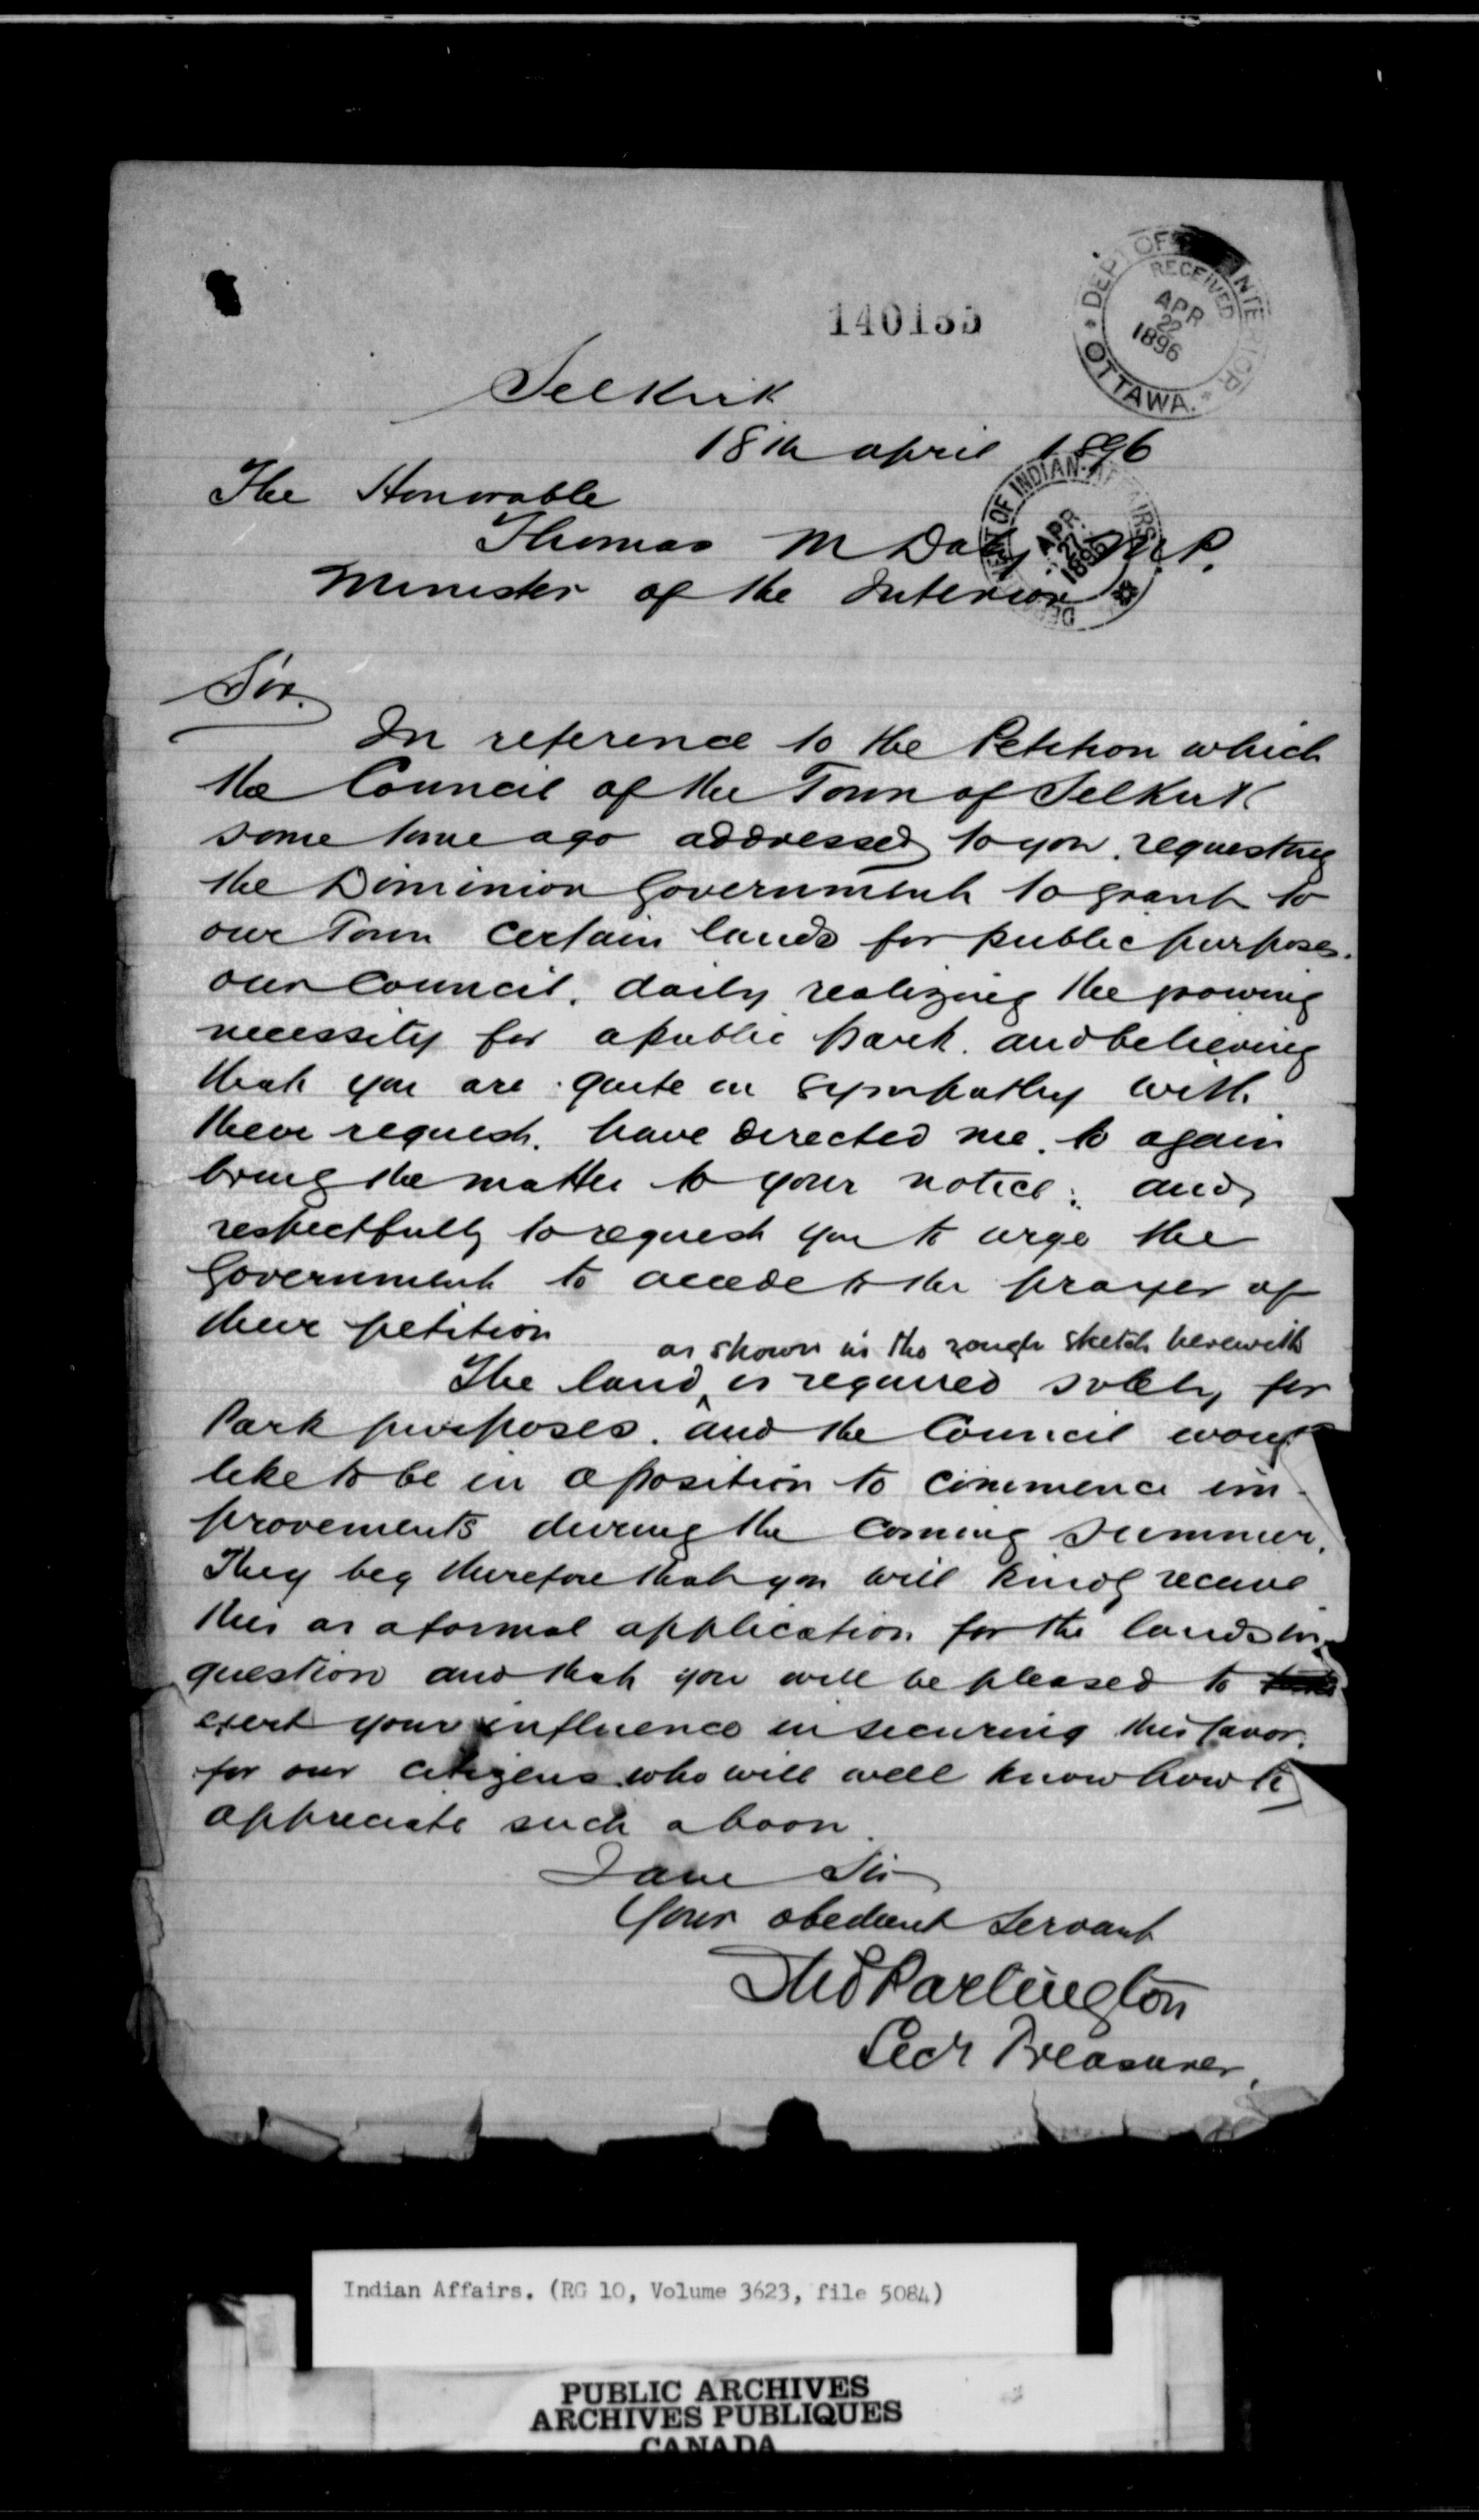 DEPT OF INTERIOR
RECEIVED
APR
22
1896
OTTAWA.
140135
Selkirk
18th april 1896
The Honorable
Thomas M Daly M.P.
Minister of the Interior
DEPARTMENT OF INDIAN AFFAIRS
APR
27
1896
Sir.
In reference to the Petition which
the Council of the Town of Selkirk
some time ago addressed to you, requesting
the Dominion Government to grant to
our Town certain lands for public purposes.
our Council, daily realizing the growing
necessity for a public park. and believing
that you are quite in sympathy with
their request. have directed me, to again
bring the matter to your notice; and
respectfully to request you to urge the
Government to accede to the prayer of
their petition
as shown in the rough sketch herewith
The land ^ is required solely for
Park purposes. and the Council would
like to be in a position to commence im-
provements during the coming summer.
They beg therefore that you will kindly receive
this as a formal application for the lands in
question and that you will be pleased to
exert your influence in securing this favor.
for our citizens who will well know how to
appreciate such a boon.
I am Sir
Your obedient Servant
Tho Partington
Secr Treasurer,
Indian Affairs. (RG 10, Volume 3623, file 5084)
PUBLIC ARCHIVES
ARCHIVES PUBLIQUES
CANADA